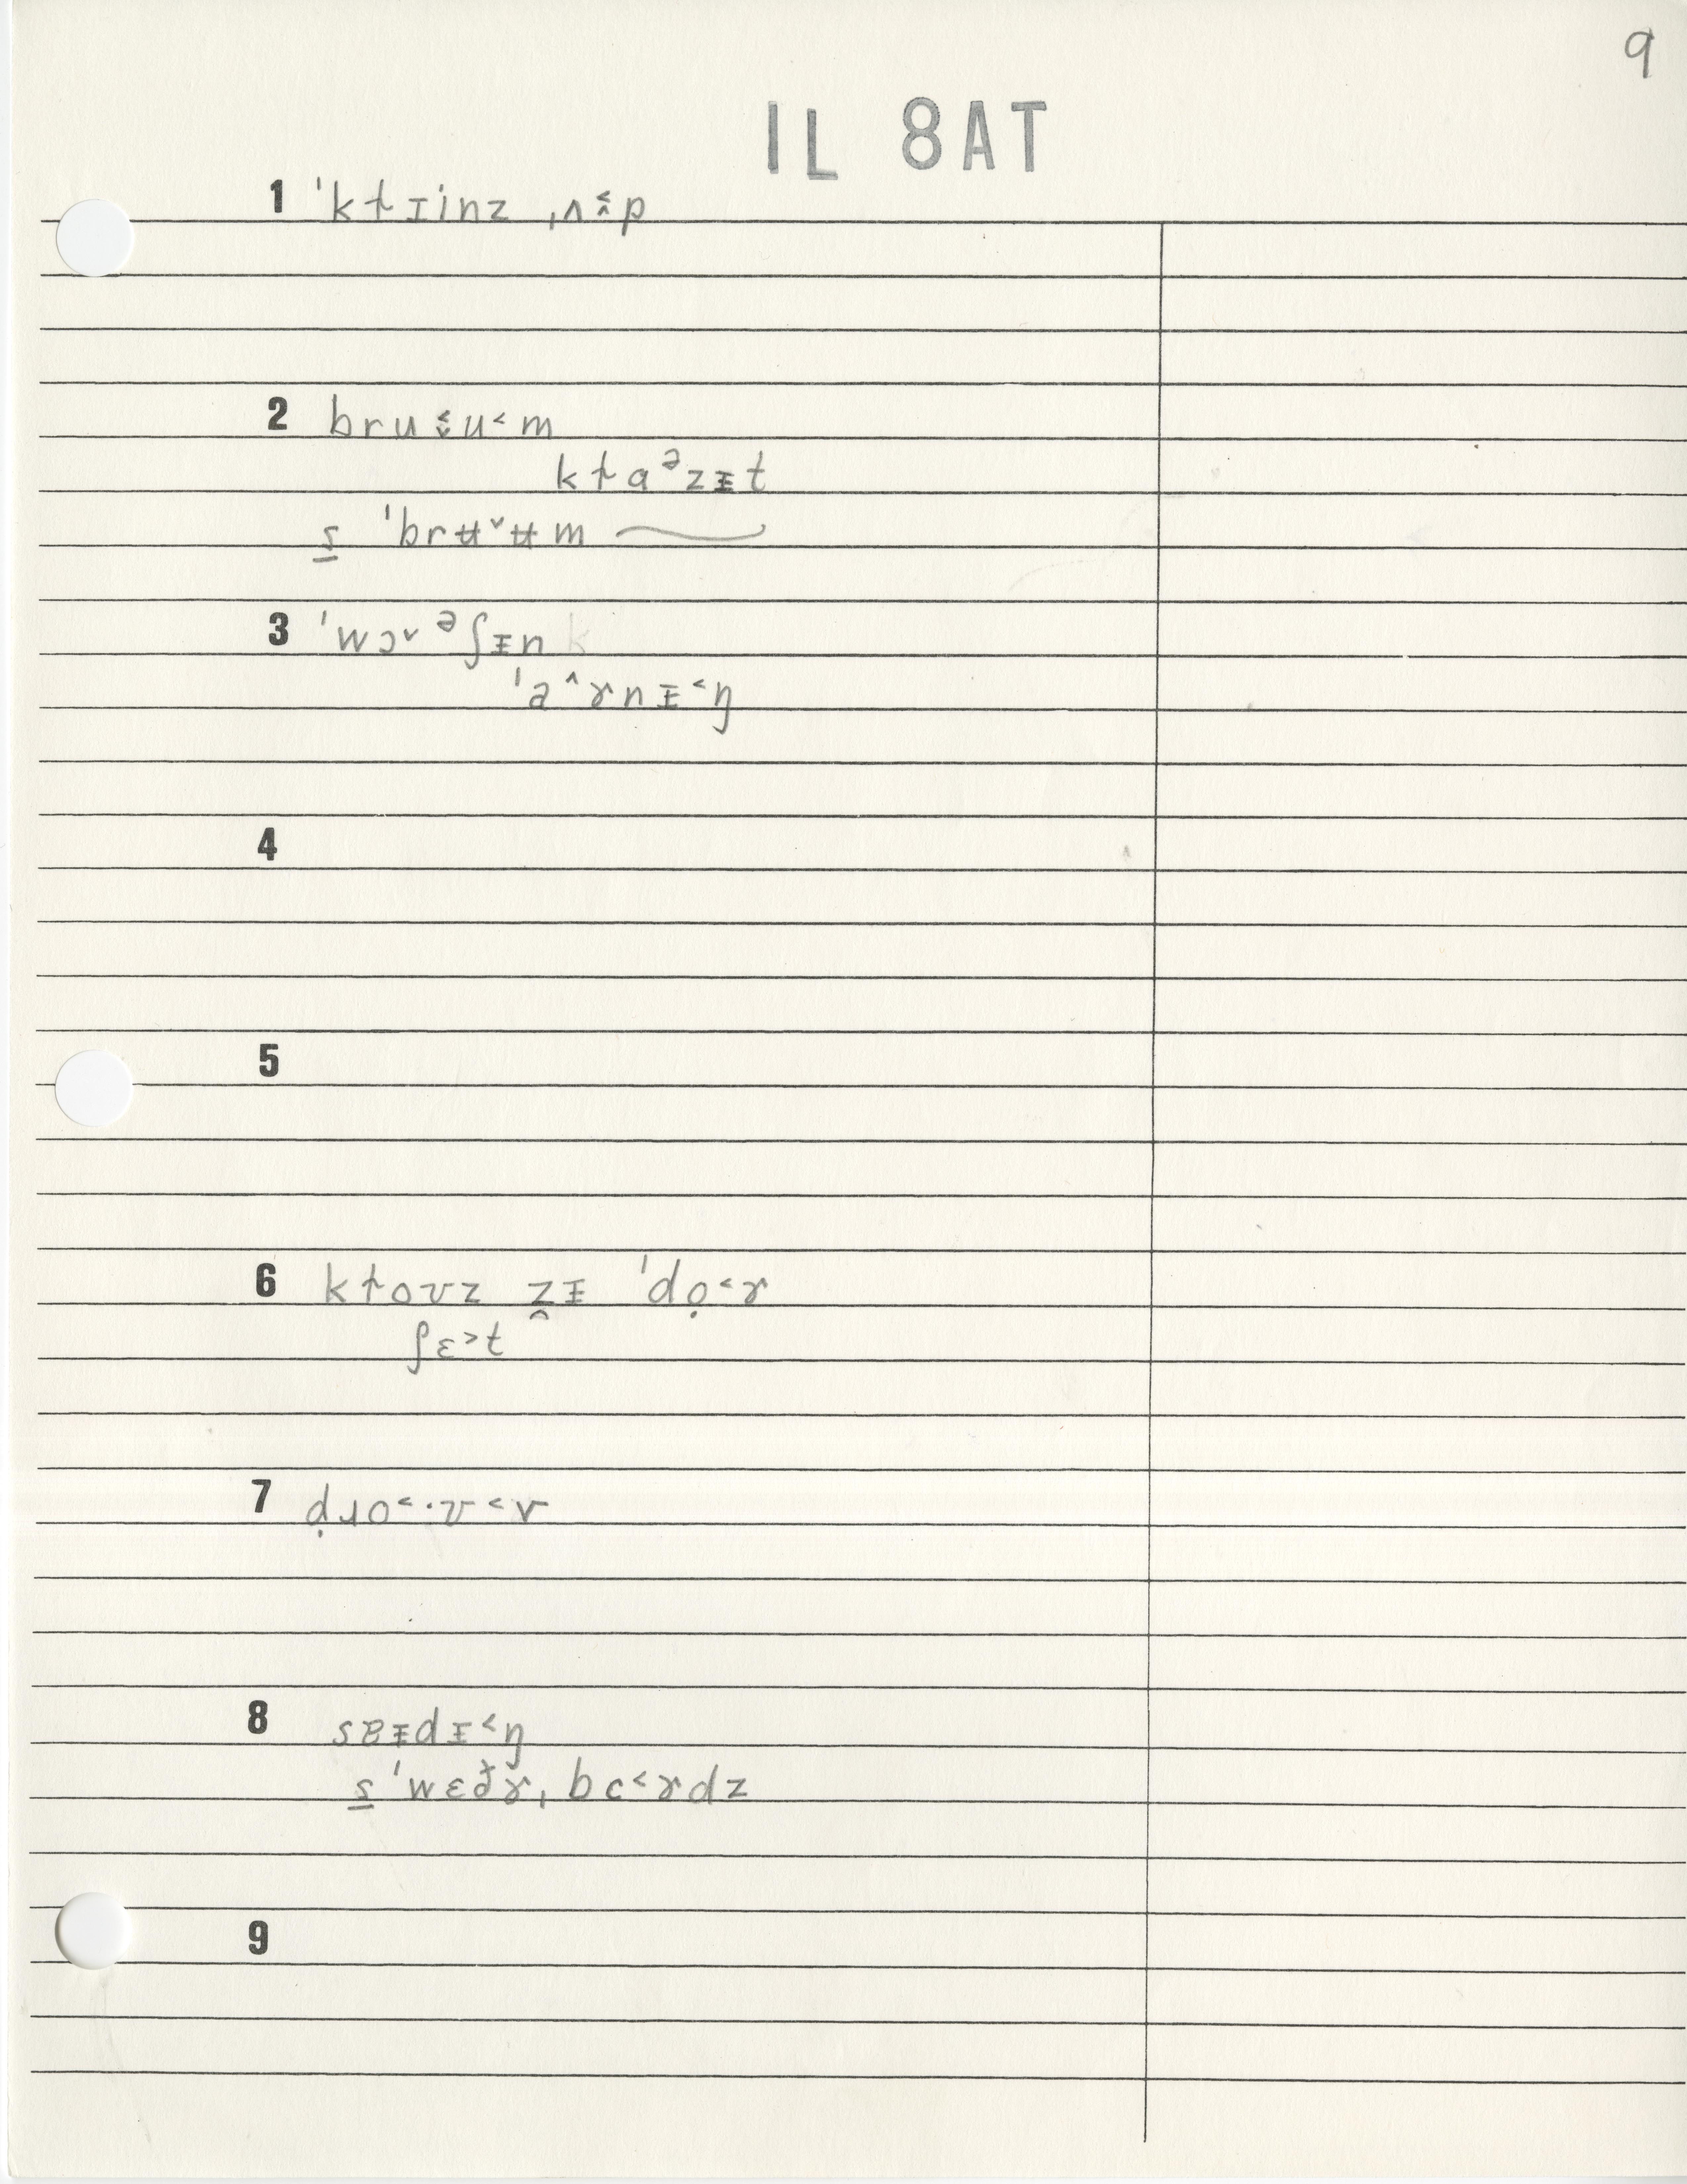 9
IL 8AT
1 ˈkɫɪinz ˌʌ˂̭p
2 bruˇ˂u˂m
kɫɑᵊzᵻt
s̲ ˈbrʉˇʉm ⁓
3 ˈwɔˇᵊʃᵻn
ˈɚ^ɤnᵻ˂ŋ
4
5
6 kɫoʊz z̯ᵻ ˈdọ˂ɤ
ʃɛ˃t
7 ḍɹo˂·ʊ˂v
8 sɐᵻdᵻ˂ŋ
s̲ ˈwɛð̬ɤˌbɔ˂ɤdz
9